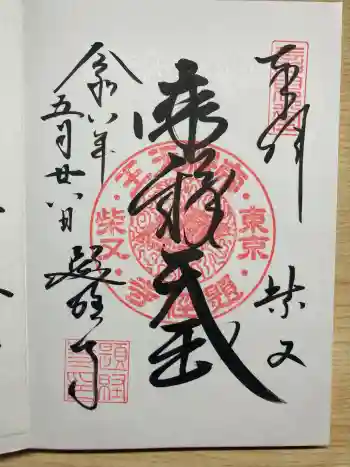 奉拝
柴又
帝釈天王
令和八年
五月廿八日
題経寺
東京
柴又
題経寺